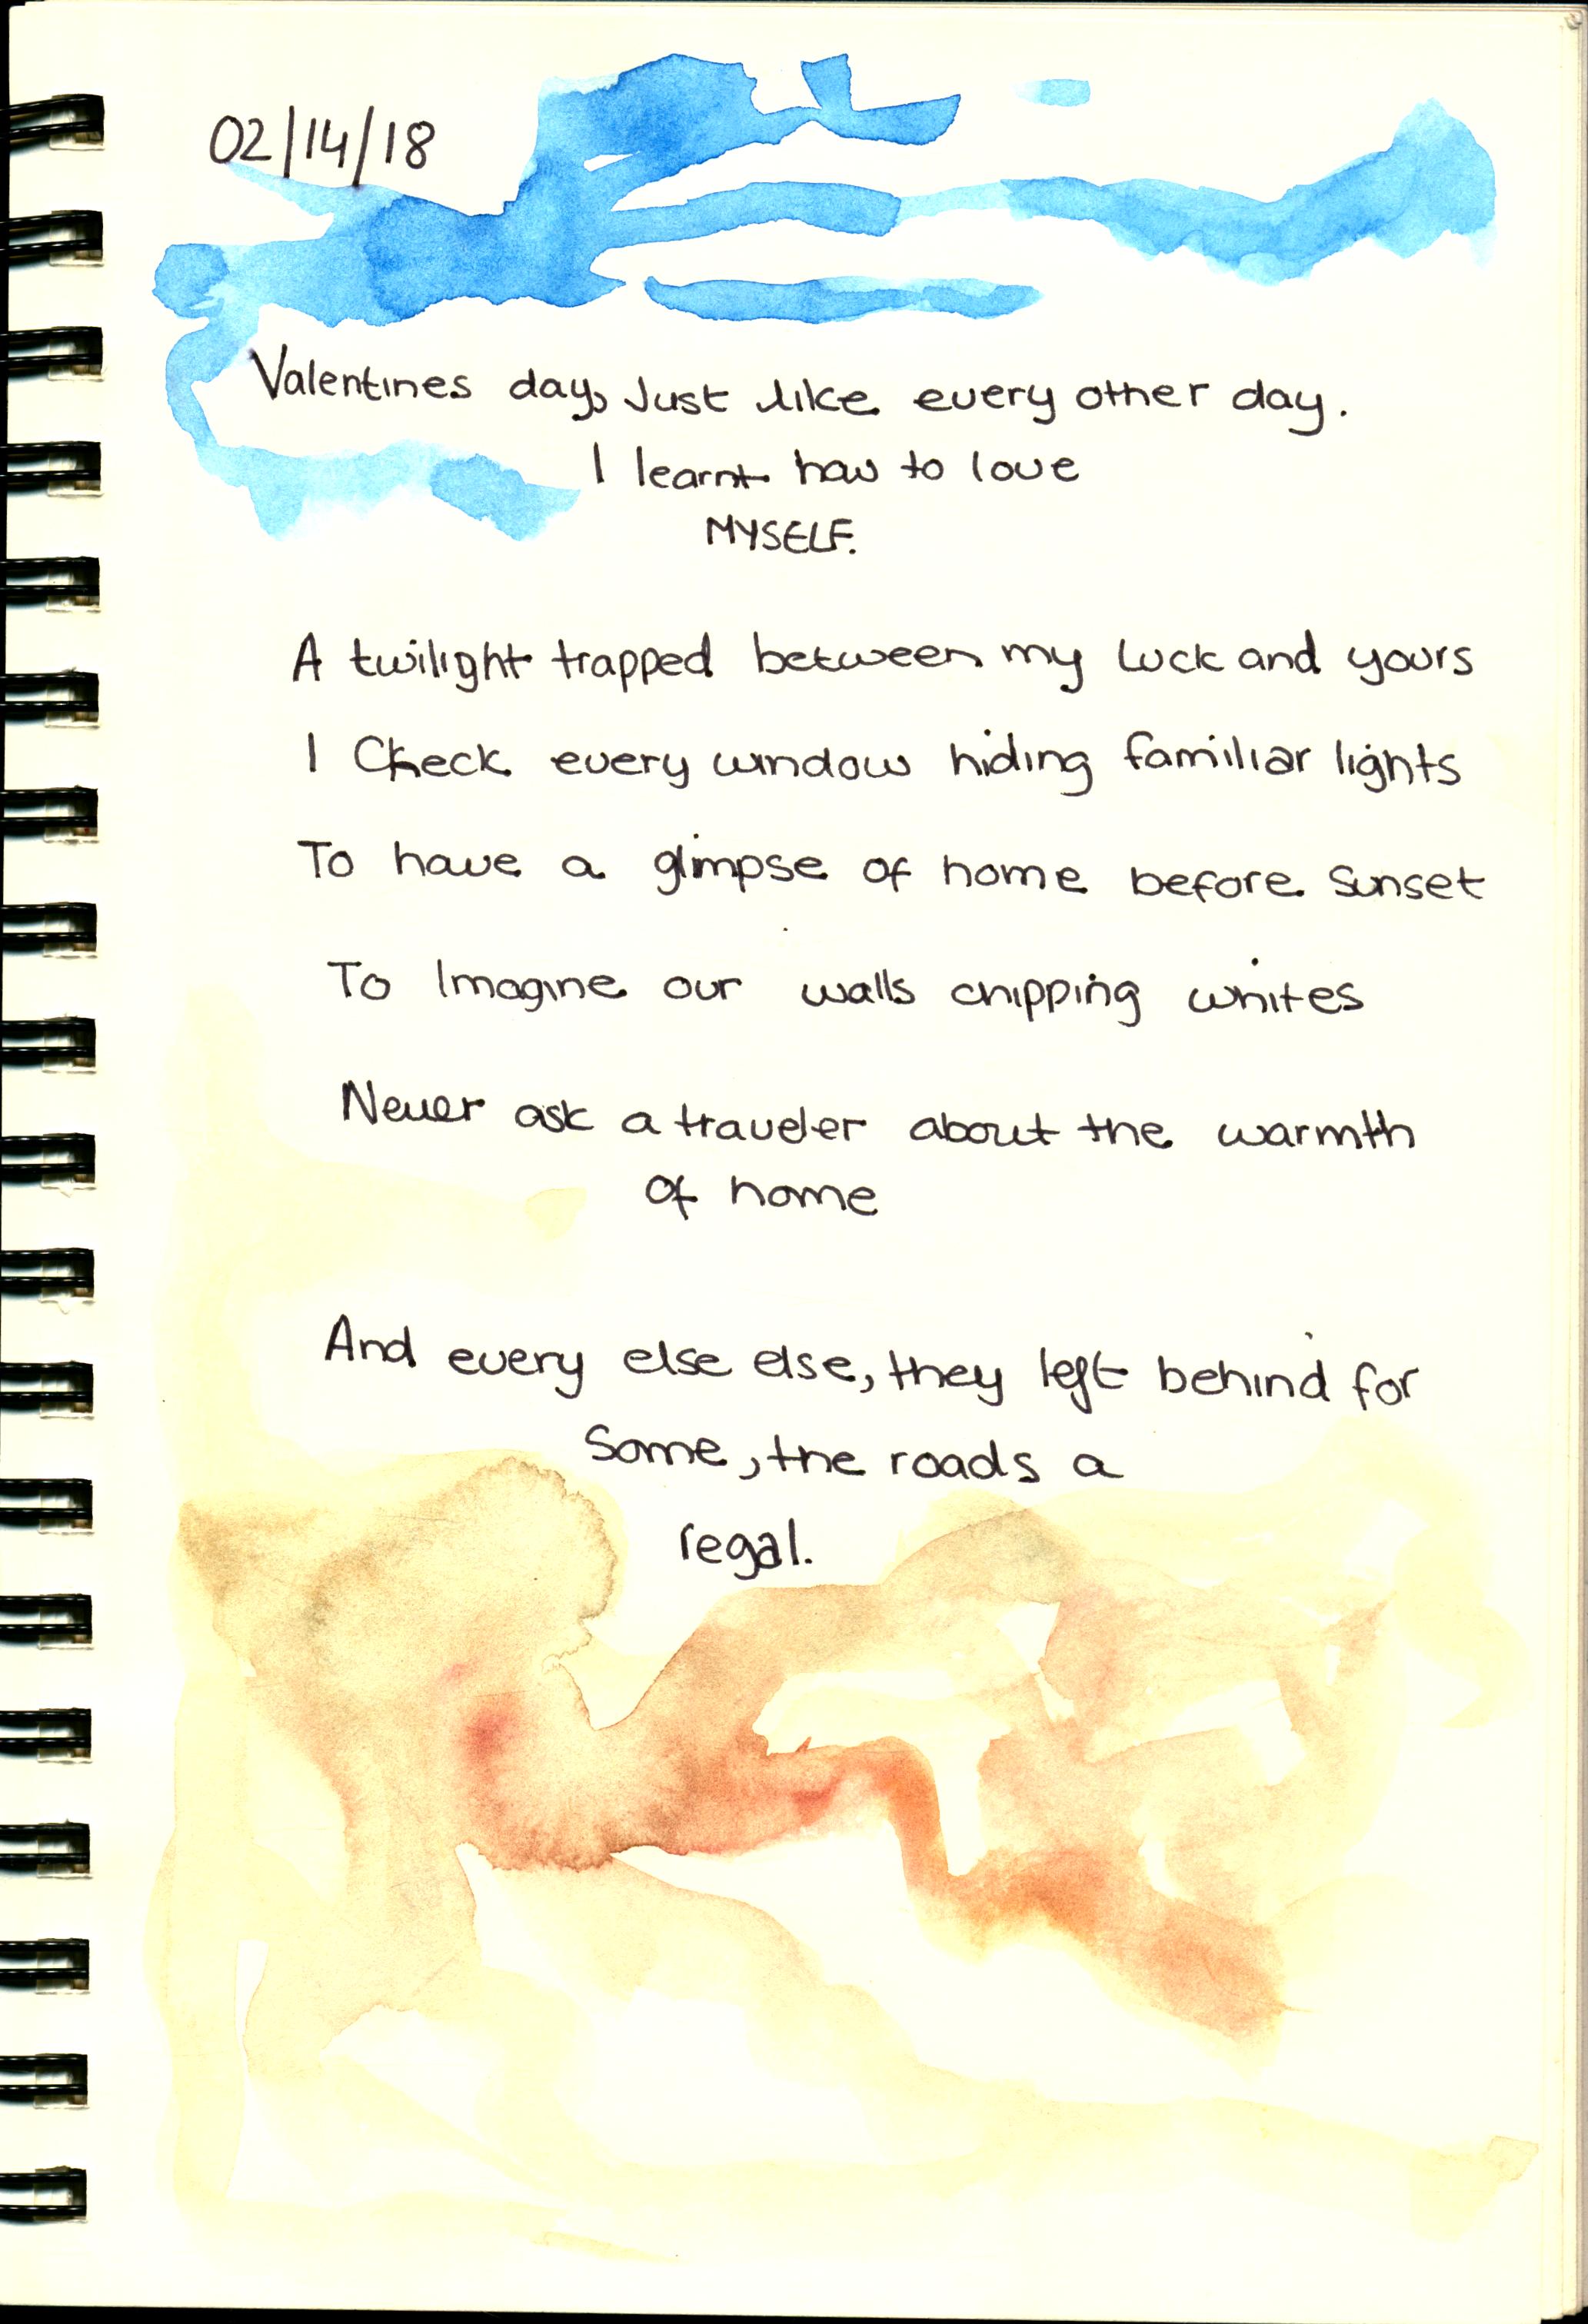 02/14/18
Valentines day, Just like every other day.
I learnt how to love
MYSELF.
A twilight trapped between my luck and yours
I Check every window hiding familiar lights
To have a glimpse of home before sunset
To Imagine our walls chipping whites
Never ask a traveler about the warmth
of home
And every else else, they left behind for
Some, the roads a
regal.